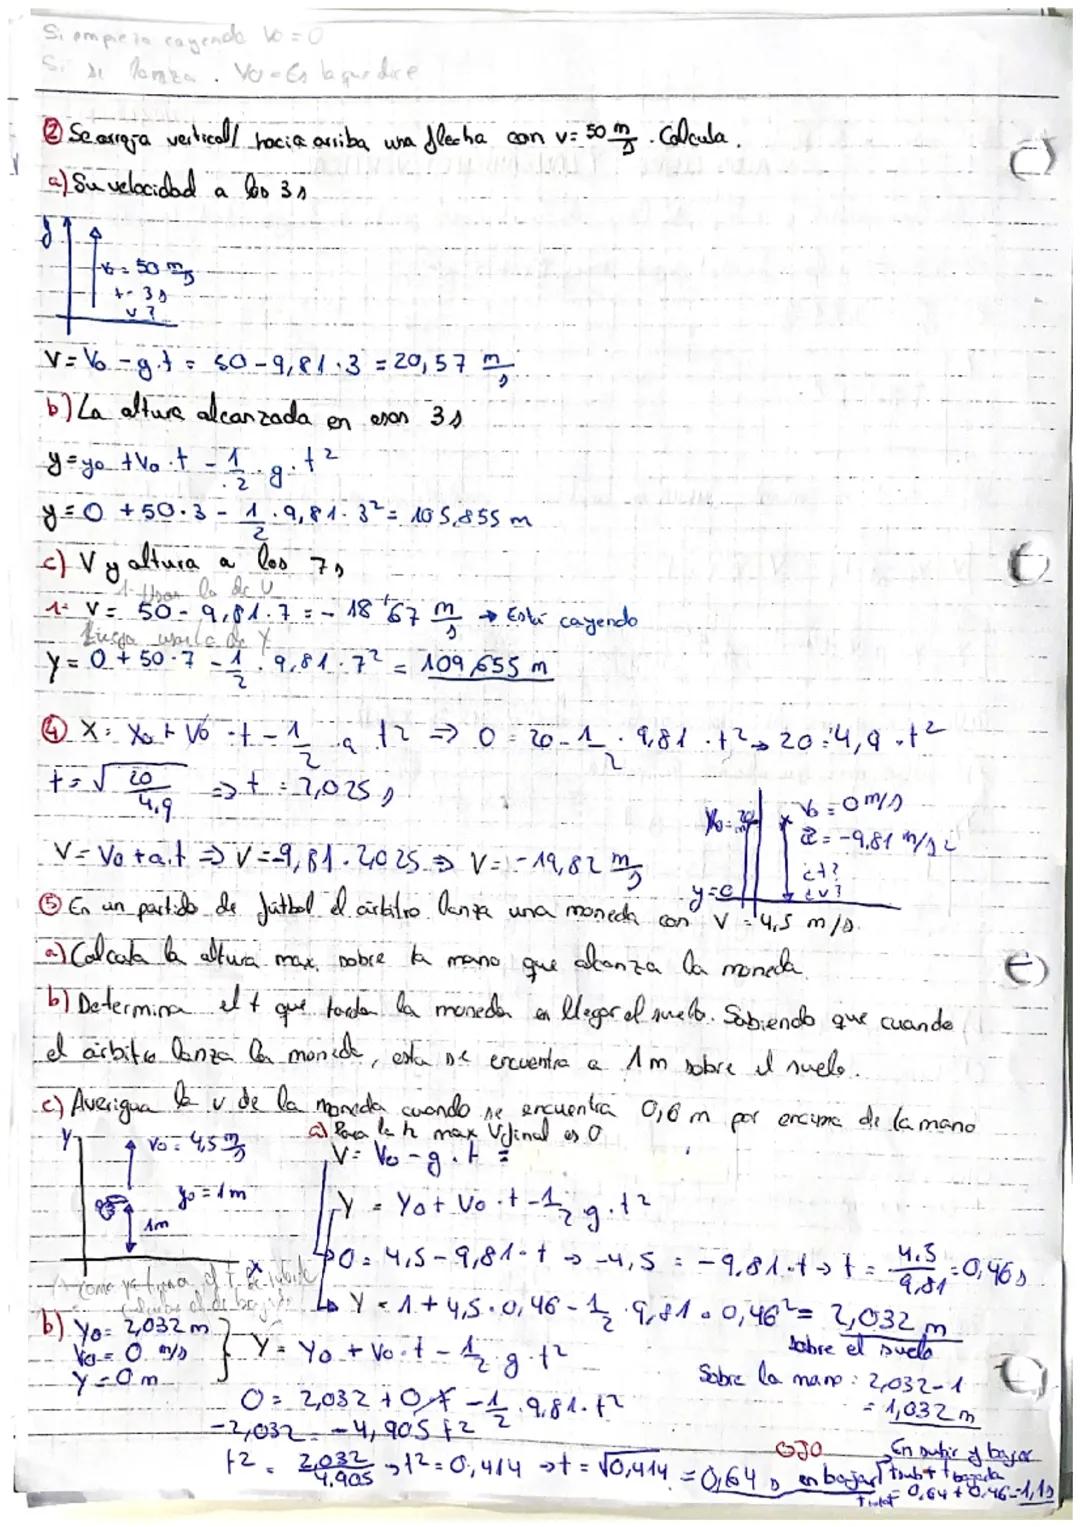 Si empieza cayendo Vo = 0
Si se lanza. Vo = Es la que dice
② Se arroja vertical/ hacia arriba una flecha con v = 50 m/s. Calcula.
a) Su velocidad a los 3s
y
vo = 50 m/s
t = 3s
v?
V = Vo - g.t = 50 - 9,81·3 = 20,57 m/s
b) La altura alcanzada en esos 3s
y = yo + Vo·t - 1/2·g·t²
y = 0 + 50·3 - 1/2·9,81·3² = 105,855 m
c) V y altura a los 7s
1- Usar la de V
1- V = 50 - 9,81·7 = - 18'67 m/s → Está cayendo
Luego usar la de Y
Y = 0 + 50·7 - 1/2·9,81·7² = 109,655 m
④ X = Xo + Vo·t - 1/2·a t² ⇒ 0 = 20 - 1/2·9,81·t² → 20 = 4,9·t²
t = √20/4,9 ⇒ t = 2,025s
Xo = 20 m
Vo = 0 m/s
a = -9,81 m/s²
¿t?
¿v?
y = 0
V = Vo + a.t ⇒ V = -9,81·2,025 ⇒ V = -19,82 m/s
⑤ En un partido de fútbol el árbitro lanza una moneda con V = 4,5 m/s.
a) Calcula la altura max. sobre la mano que alcanza la moneda.
b) Determina el t que tarda la moneda en llegar al suelo. Sabiendo que cuando
el árbitro lanza la moneda, esta se encuentra a 1m sobre el suelo.
c) Averigua la v de la moneda cuando se encuentra 0,6 m por encima de la mano
Y
Vo = 4,5 m/s
yo = 1m
1m
X
a) Para la h max Vfinal es 0
V = Vo - g.t =
Y = Yo + Vo·t - 1/2 g·t²
0 = 4,5 - 9,81·t → -4,5 = -9,81·t → t = 4,5/9,81 = 0,46s
Y = 1 + 4,5·0,46 - 1/2·9,81·0,46² = 2,032 m
sobre el suelo
Sobre la mano: 2,032 - 1
= 1,032 m
b) Yo = 2,032 m
Vo = 0 m/s
Y = 0 m
Y = Yo + Vo·t - 1/2·g·t²
0 = 2,032 + 0·t - 1/2·9,81·t²
-2,032 = -4,905 t²
t² = 2,032/4,905 → t² = 0,414 → t = √0,414 = 0,64 s en bajar
OJO
En subir y bajar
tsub + tbajada
ttotal = 0,64 + 0,46 = 1,1s